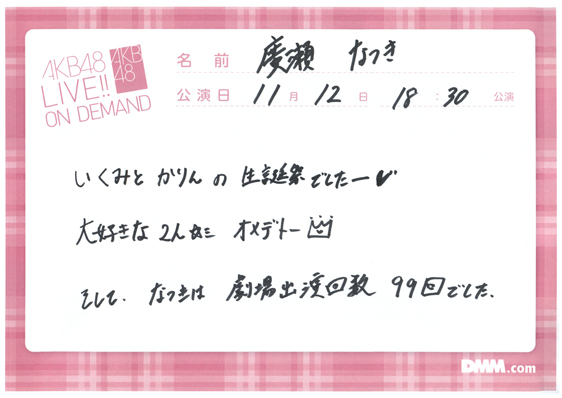 AKB48
LIVE!!
ON DEMAND
AKB
48
名前 廣瀬 なつき
公演日 11月 12日 18:30 公演
いくみと かりんの 生誕祭でしたー
大好きな 2人に オメデトー
そして、なつきは 劇場出演回数 99回でした。
DMM.com